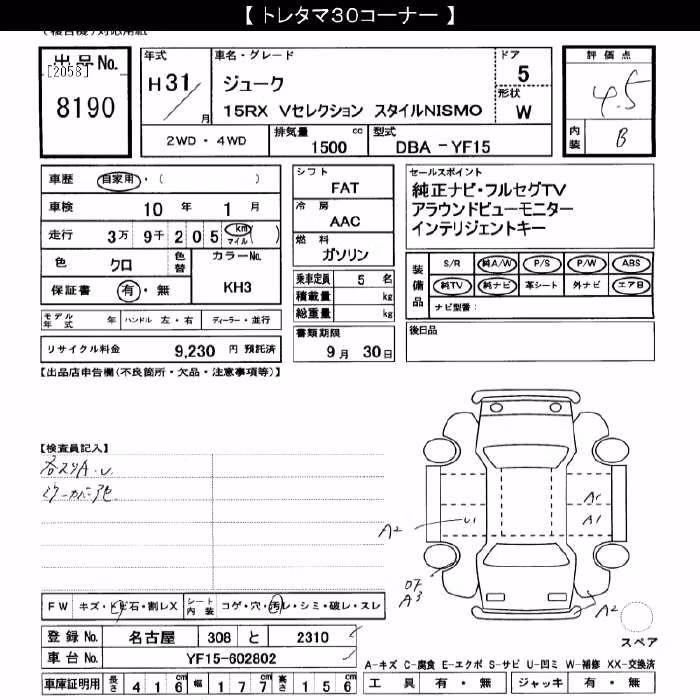 【 トレタマ30コーナー 】
(複合機)対応用紙
出品No.
[2058]
8190
年式
H31/月
車名・グレード
ジューク
15RX Vセレクション スタイルNISMO
ドア
5
形状
W
評価点
4.5
内装
B
2WD・4WD
排気量 1500 cc
型式 DBA - YF15
車歴 自家用・( )
車検 10年 1月
走行 3万 9千 2 0 5 km マイル ( )
色 クロ
色替
カラーNo.
KH3
保証書 有・無
シフト
FAT
冷房
AAC
燃料
ガソリン
乗車定員 5 名
積載量 kg
総重量 kg
書類期限
9月 30日
セールスポイント
純正ナビ・フルセグTV
アラウンドビューモニター
インテリジェントキー
装備品
S/R 純A/W P/S P/W ABS
純TV 純ナビ 革シート 外ナビ エアB
ナビ型番:
後日品
モデル年式 年 ハンドル 左・右 ディーラー・並行
リサイクル料金 9,230 円 預託済
【出品店申告欄(不良箇所・欠品・注意事項等)】
【検査員記入】
各スリA.U.
ミラーカバー色
A2
U1
A1
A1
A3
A2
スペア
FW キズ・ヒビ石・割レX シート内装 コゲ・穴・汚レ・シミ・破レ・スレ
登録No. 名古屋 308 と 2310
車台No. YF15-602802
車庫証明用 長さ 4 1 6cm 幅 1 7 7cm 高さ 1 5 6cm
A-キズ C-腐食 E-エクボ S-サビ U-凹ミ W-補修 XX-交換済
工具 有・無 ジャッキ 有・無